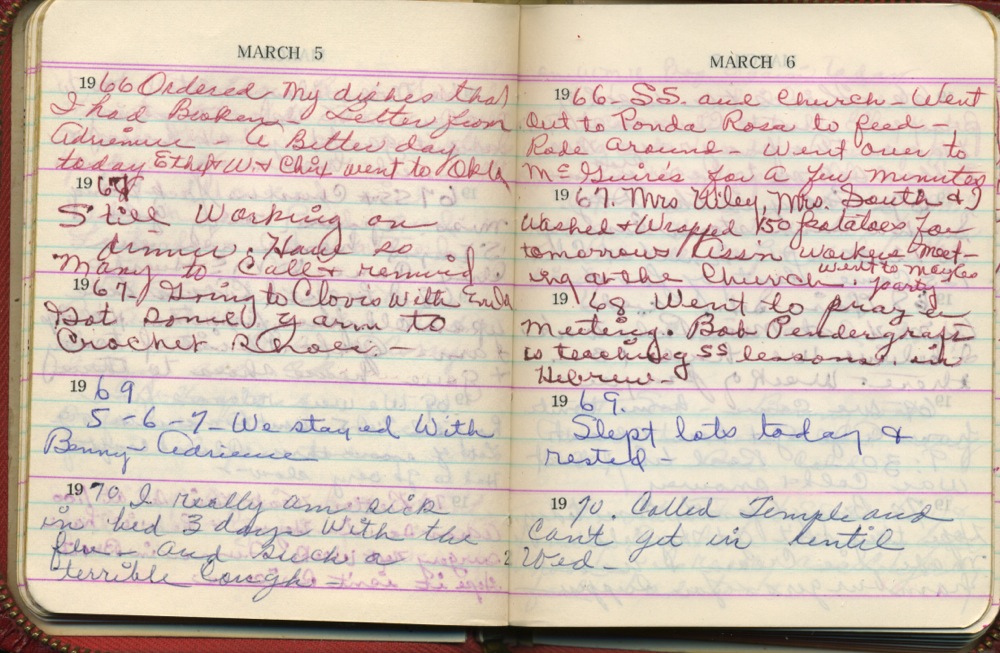 MARCH 5
1966 Ordered my dishes that
I had Broken, Letter from
Adrienne - A Better day
today Ethel & W. & Chix went to Okla
1967
Still Working on
dinner. Have so
Many to Call & remind.
1967. Going to Clovis With
Got some yarn to
Crochet
1969
5-6-7- We stayed With
Benny Adrienne
1970. I really am sick
in bed 3 days With the
flu and such a
terrible Cough -
MARCH 6
1966 - S.S. and Church - Went
Out to Ponda Rosa to feed -
Rode Around - Went over to
McGuire's for a few minutes
1967. Mrs Wiley, Mrs. South & I
Washed & Wrapped 150 potatoes for
tomorrows workers meet-
ing at the Church. went to
party
1968 Went to prayer
Meeting. Bob Pendergraft
is teaching SS lessons in
Hebrew -
1969.
Slept lots today &
rested -
1970. Called Temple and
Can't get in until
Wed -